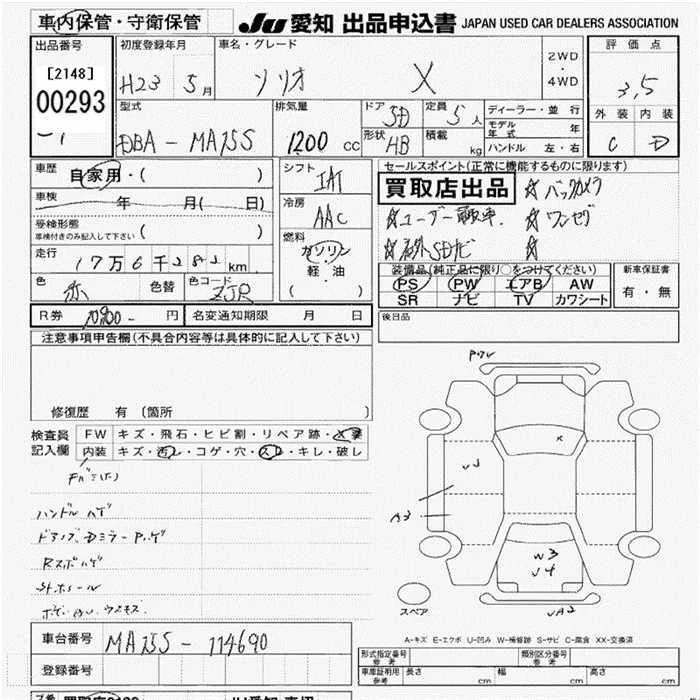 車内保管・守衛保管
JU 愛知 出品申込書 JAPAN USED CAR DEALERS ASSOCIATION
出品番号 初度登録年月 車名・グレード 2WD・4WD 評価点
[2148]
00293
H23 5月 ソリオ X 3,5
型式 排気量 ドア 5D 定員 5人 ディーラー・並行 外装 内装
モデル年式 年
DBA-MA15S 1200 cc 形状 HB 積載 kg ハンドル 左・右 C D
車歴 自家用・( )
シフト IAT
セールスポイント(正常に機能するものに限ります)
買取店出品 ☆バックカメラ
車検 年 月( 日)
冷房 AAC
☆ユーザー買取車 ☆ワンセグ
受検形態
車検付きのみ記入して下さい ( )
☆社外SDナビ ☆
走行 17万6千282km
燃料 ガソリン 軽・油 ( )
装備品(純正品に限り○をつけてください) 新車保証書
PS PW エアB AW
SR ナビ TV カワシート
有・無
色 赤 色替 色コード ZJR
R券 10900- 円 名変通知期限 月 日
後日品
注意事項申告欄(不具合内容等は具体的に記入して下さい)
修復歴 有 〔箇所 〕
検査員記入欄
FW キズ・飛石・ヒビ割・リペア跡・X要
内装 キズ・汚レ・コゲ・穴・スレ・キレ・破レ
ハンドルハゲ
ドアミラー
Rスポハゲ
A3
W3
V4
スペア
A-キズ E-エクボ U-凹み W-補修跡 S-サビ C-腐食 XX-交換済
車台番号 MA15S-114690
登録番号
形式指定番号 参考 類別区分番号 参考
車庫証明用 参考 長さ cm 幅 cm 高さ cm